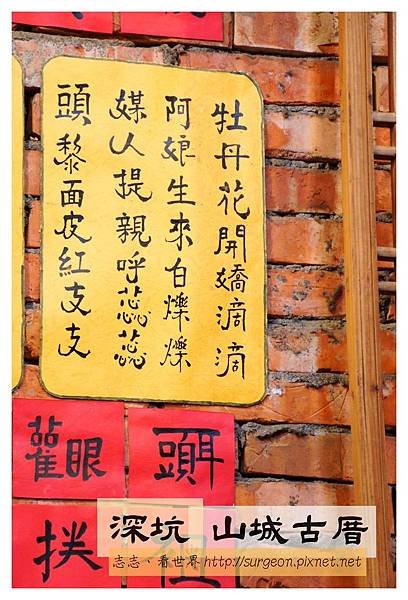 牡丹花開嬌滴滴
阿娘生來白爍爍
媒人提親呼蕊蕊
頭黎面皮紅支支
頭耳
深坑 山城古厝
志志、看世界 http://surgeon.pixnet.net